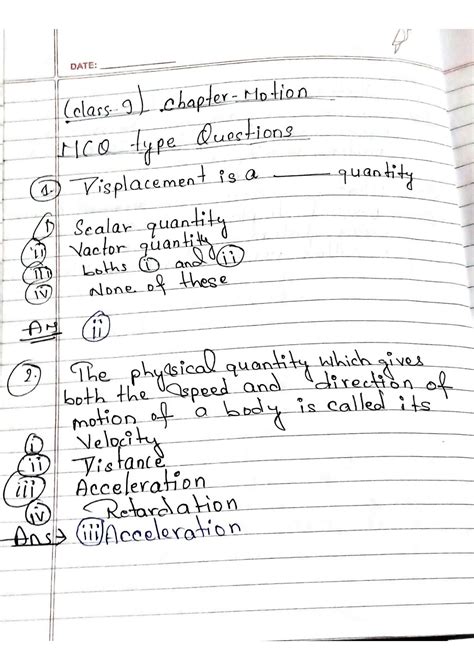 DATE:
(class-9) chapter-Motion
MCQ type Questions
1. Displacement is a ___ quantity
i Scalar quantity
ii Vactor quantity
iii boths i and ii
iv None of these
An ii
2. The physical quantity which gives
both the speed and direction of
motion of a body is called its
i Velocity
ii Distance
iii Acceleration
iv Retardation
Ans→ iii Acceleration